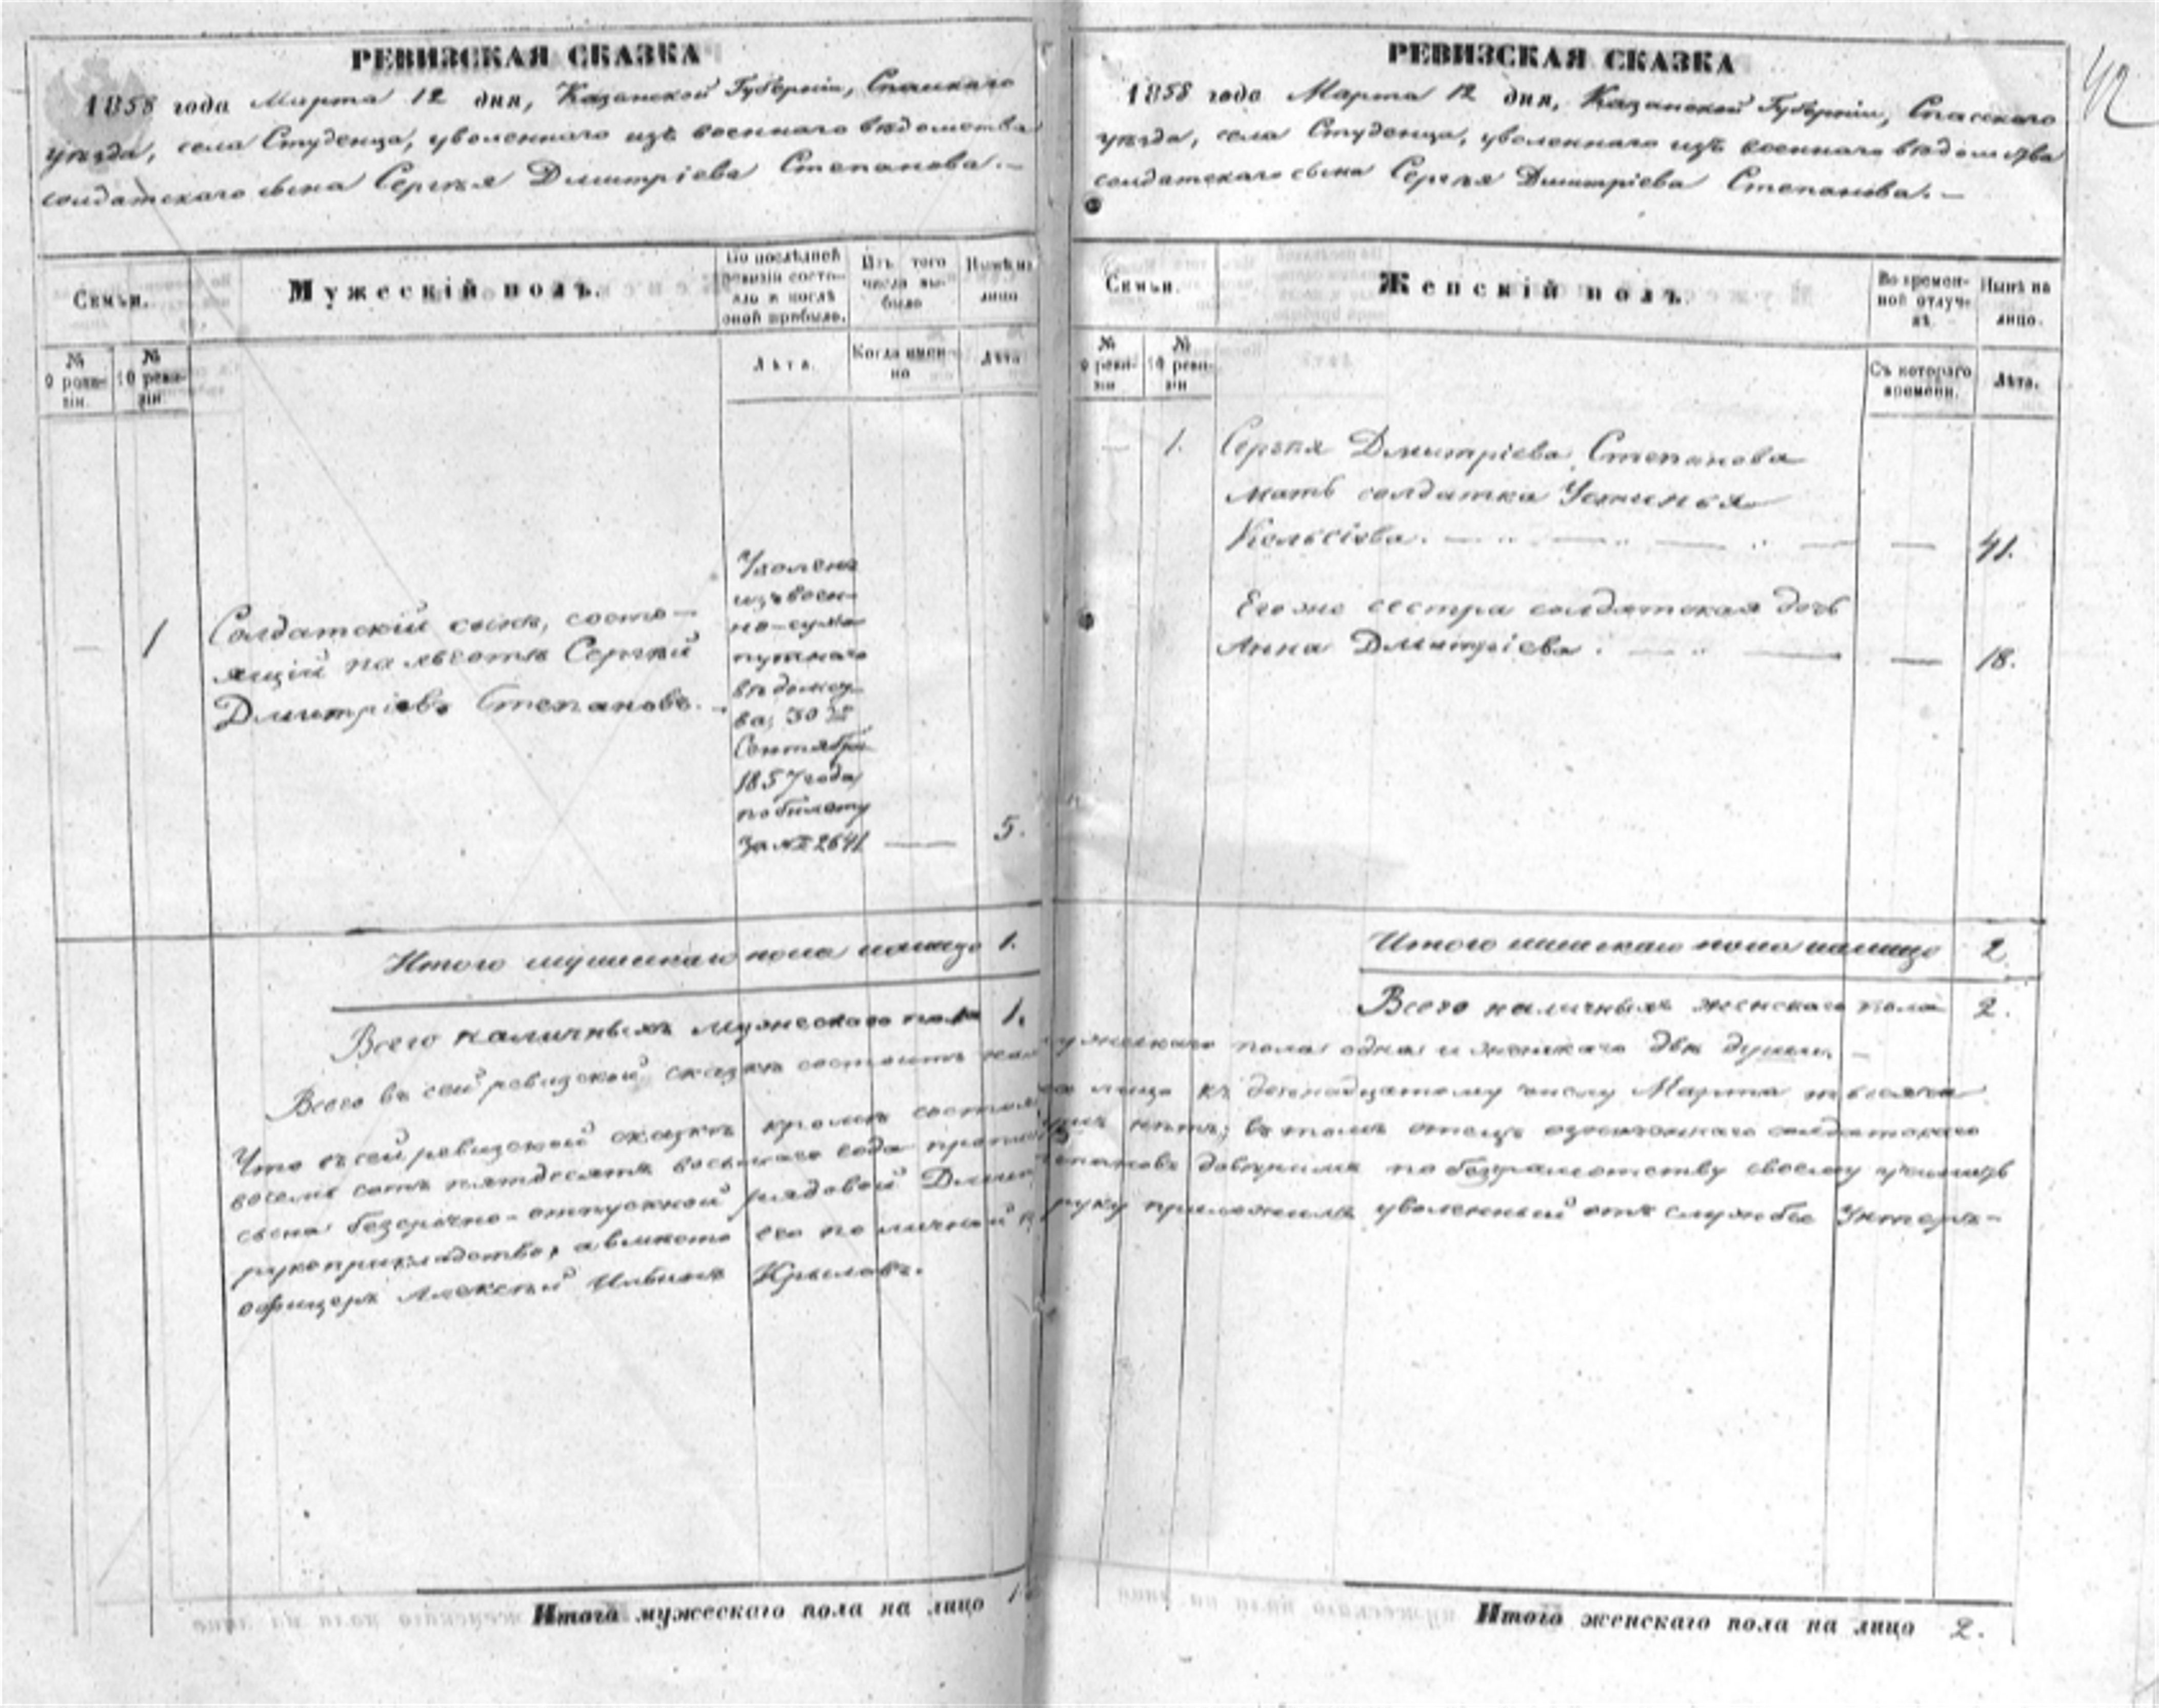 РЕВИЗСКАЯ СКАЗКА
1858 года Марта 12 дня, Казанской Губерніи, Спаскаго
уѣзда, села Студенца, уволеннаго изъ военнаго вѣдомства
солдатскаго сына Сергѣя Дмитріева Степанова.—
Семьи.
Мужескій полъ.
По послѣдней
ревизіи состо-
яло и послѣ
оной прибыло.
Изъ того
числа вы-
было
Нынѣ на
лицо
№
9 реви-
зіи.
№
10 реви-
зіи
Лѣта.
Когда имен-
но
Лѣта
—
1
Солдатскій сынъ, состо-
ящій на Сергѣй
Дмитріевъ Степановъ.
Уволенъ
изъ воен-
но-сухо
путнаго
вѣдомст
ва, 30го
Сентября
1857 года
по билету
за № 2641
—
5.
Итого мужескаго пола налицо 1.
Всего наличныхъ мужескаго пола 1.
РЕВИЗСКАЯ СКАЗКА
42
1858 года Марта 12 дня, Казанской Губерніи, Спасскаго
уѣзда, села Студенца, уволеннаго изъ военнаго вѣдомства
солдатскаго сына Сергѣя Дмитріева Степанова.—
Семьи.
Женскій полъ.
Во времен-
ной отлуч-
кѣ.
Нынѣ на
лицо.
№
9 реви-
зіи
№
10 реви-
зіи
Съ котораго
времени.
Лѣта.
— 1. Сергѣя Дмитріева Степанова
мать солдатка Устинья
— 41.
Его же сестра солдатская дочь
Анна Дмитріева. — 18.
Итого женскаго пола налицо 2
Всего наличныхъ женскаго пола 2.
Всего въ сей ревизской сказкѣ состоитъ мужескаго пола одна и женскаго двѣ души.—
Что въ сей ревизской сказкѣ кромѣ на лицо къ двенадцатому числу Марта тысяча
восемь сотъ пятдесятъ восьмаго года нѣтъ; въ томъ отецъ солдатскаго
сына безсрочно-отпускной рядовой Степановъ по безграмотству своему
рукоприкладство, а вмѣсто его по личной руку приложилъ уволенный отъ службы Унтеръ-
офицеръ Алексѣй Ильинъ Крыловъ.
Итого мужескаго пола на лицо 1
Итого женскаго пола на лицо 2.